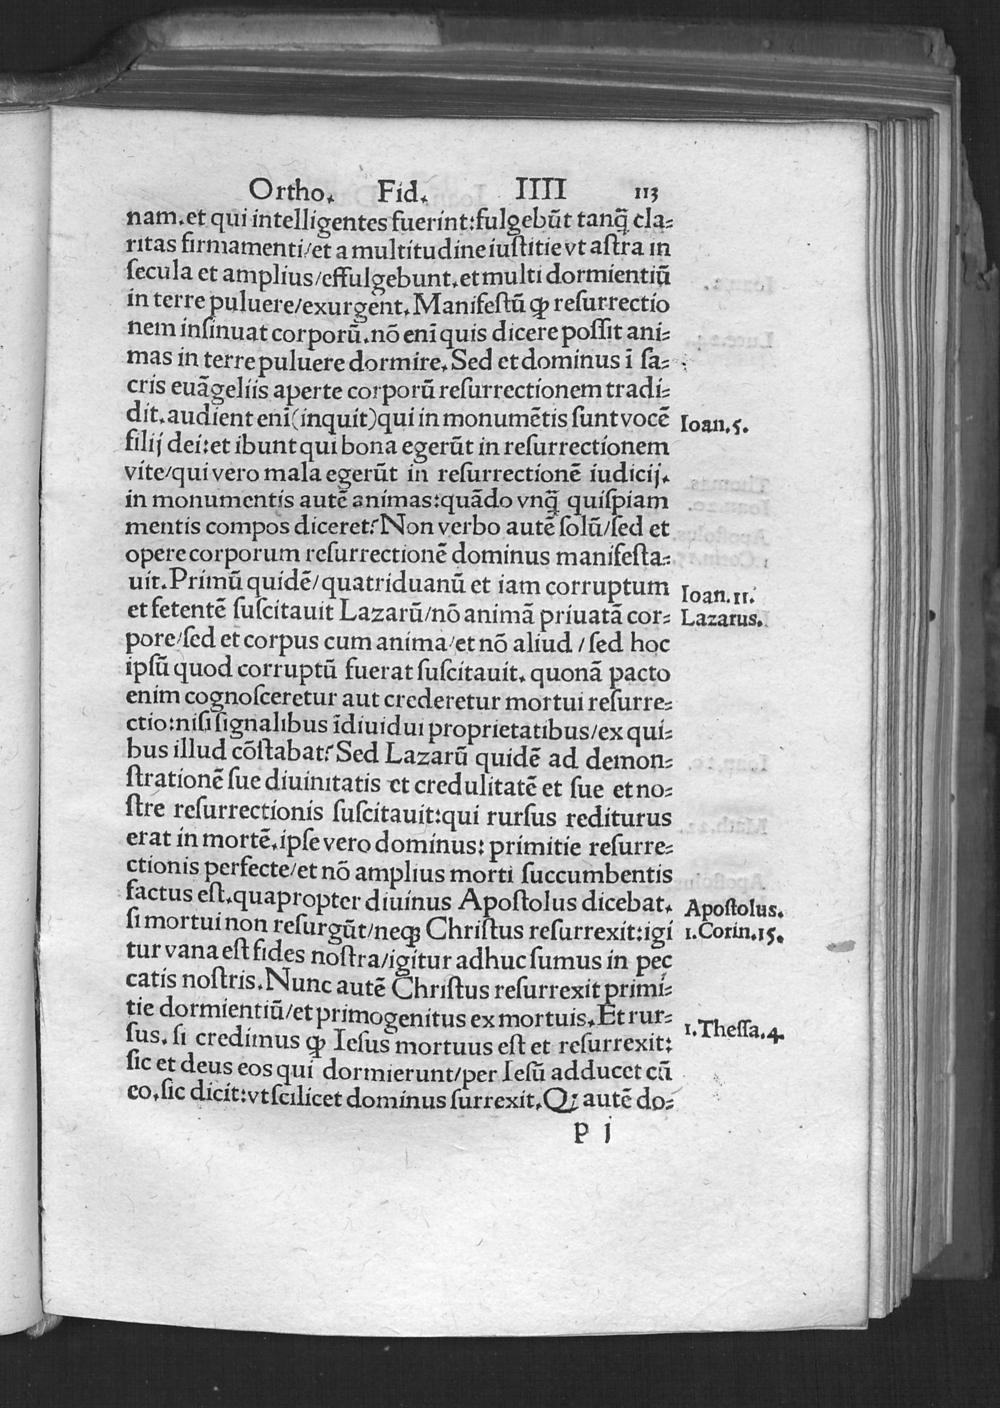 Ortho. Fid. IIII 113
nam.et qui intelligentes fuerint:fulgebũt tanq̃ cla⸗
ritas firmamenti/et a multitudine iuſtitie vt aſtra in
ſecula et amplius/effulgebunt.et multi dormientiũ
in terre puluere/exurgent. Manifeſtũ ꝙ reſurrectio
nem inſinuat corporũ.nõ enĩ quis dicere poſſit ani⸗
mas in terre puluere dormire. Sed et dominus ĩ ſa⸗
cris euãgeliis aperte corporũ reſurrectionem tradi⸗
dit.audient enĩ(inquit)qui in monumẽtis ſunt vocẽ Ioan.5.
filij dei:et ibunt qui bona egerũt in reſurrectionem
vite/qui vero mala egerũt in reſurrectionẽ iudicij.
in monumentis autẽ animas:quãdo vnq̃ quiſpiam
mentis compos diceret? Non verbo autẽ ſolũ/ſed et
opere corporum reſurrectionẽ dominus manifeſta⸗
uit. Primũ quidẽ/quatriduanũ et iam corruptum Ioan.11.
et fetentẽ ſuſcitauit Lazarũ/nõ animã priuatã cor⸗ Lazarus.
pore/ſed et corpus cum anima/et nõ aliud/ſed hoc
ipſũ quod corruptũ fuerat ſuſcitauit. quonã pacto
enim cognoſceretur aut crederetur mortui reſurre⸗
ctio:niſi ſignalibus ĩdiuidui proprietatibus/ex qui⸗
bus illud cõſtabat? Sed Lazarũ quidẽ ad demon⸗
ſtrationẽ ſue diuinitatis et credulitatẽ et ſue et no⸗
ſtre reſurrectionis ſuſcitauit:qui rurſus rediturus
erat in mortẽ.ipſe vero dominus: primitie reſurre⸗
ctionis perfecte/et nõ amplius morti ſuccumbentis
factus eſt.quapropter diuinus Apoſtolus dicebat. Apoſtolus.
ſi mortui non reſurgũt/neqꝫ Chriſtus reſurrexit:igi 1.Corin.15.
tur vana eſt fides noſtra/igitur adhuc ſumus in pec
catis noſtris. Nunc autẽ Chriſtus reſurrexit primi⸗
tie dormientiũ/et primogenitus ex mortuis. Et rur⸗
ſus. ſi credimus ꝙ Ieſus mortuus eſt et reſurrexit: 1.Theſſa.4.
ſic et deus eos qui dormierunt/per Ieſũ adducet cũ
eo.ſic dicit:vt ſcilicet dominus ſurrexit. Qꝫ autẽ do⸗
P j